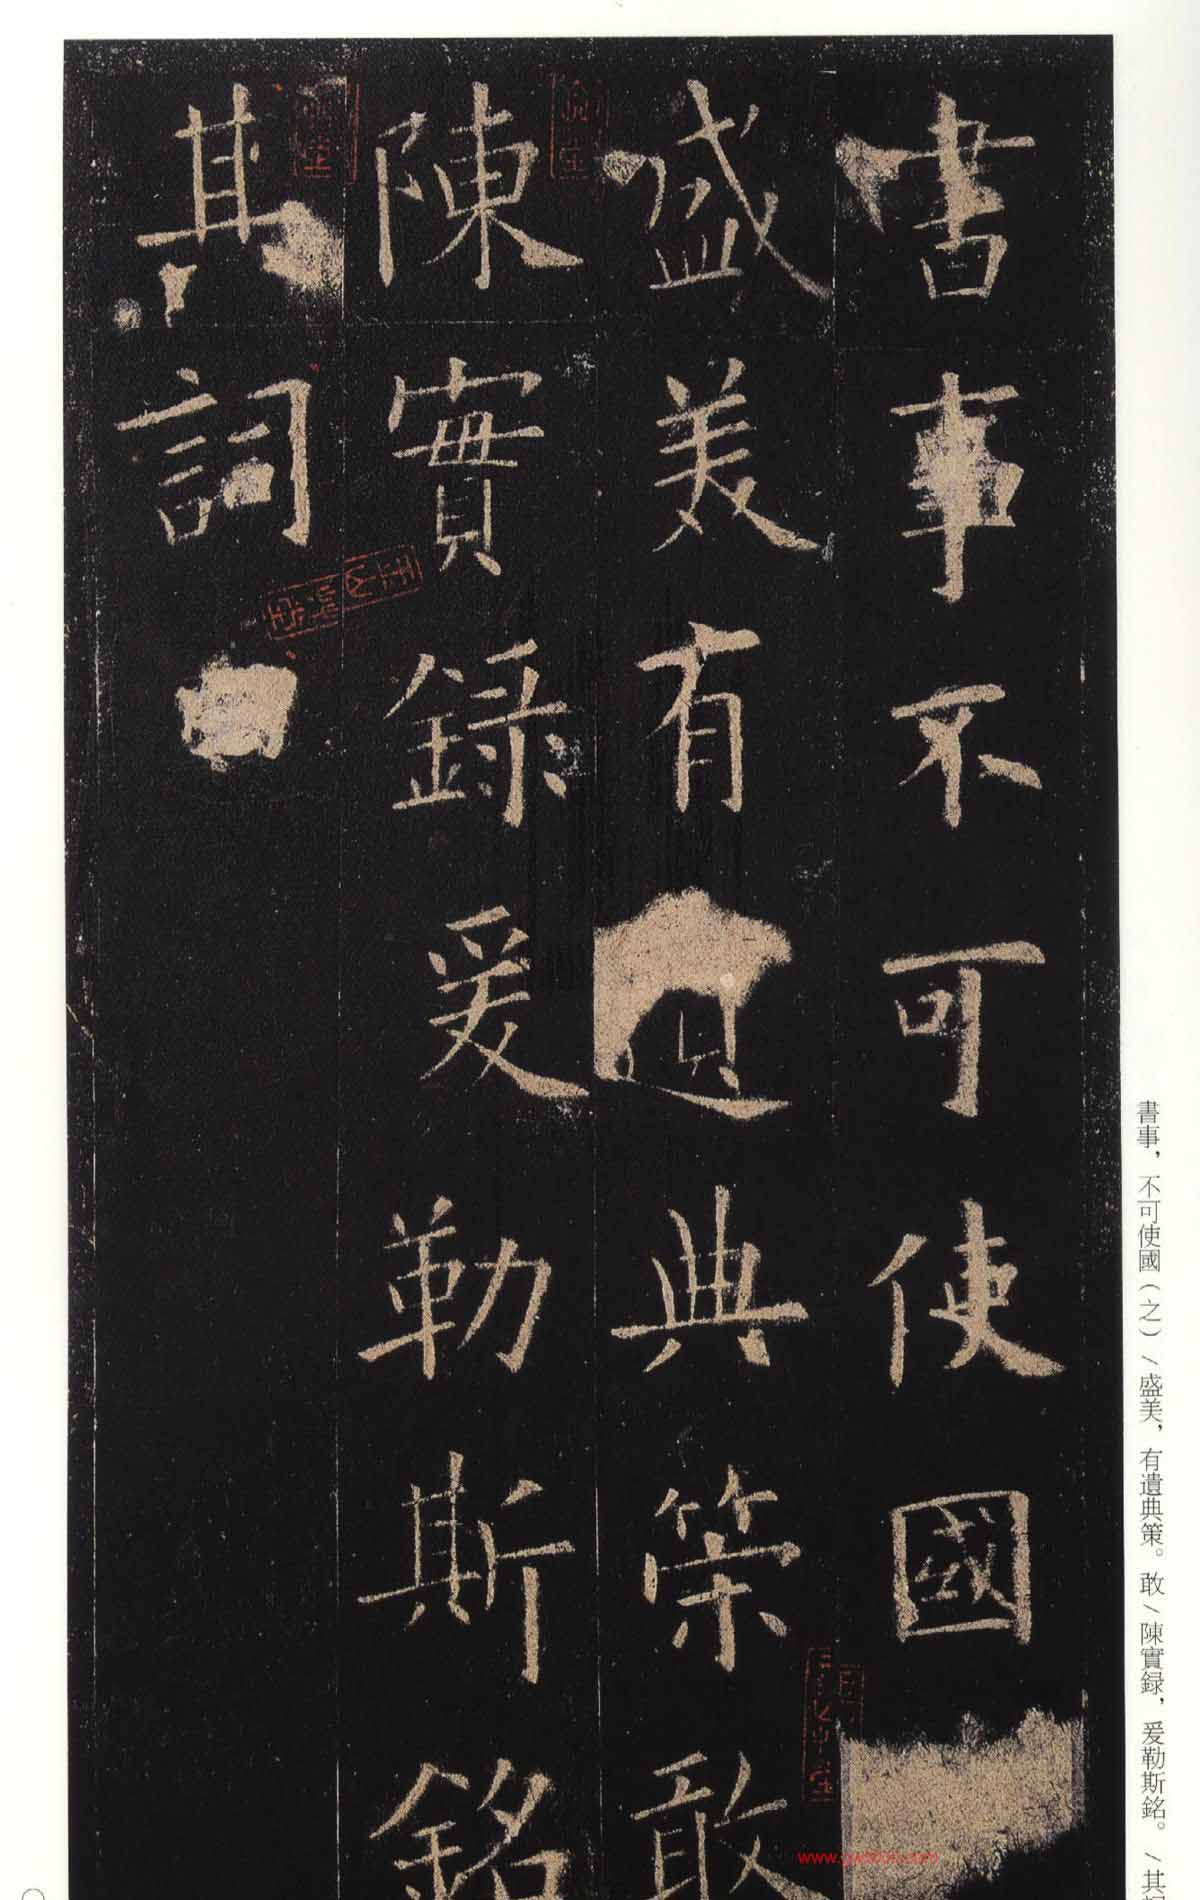 書事不可使國
盛美有遺典策敢
陳實録爰勒斯銘
其詞
書事，不可使國（之）/盛美，有遺典策。敢/陳實録，爰勒斯銘。/其詞